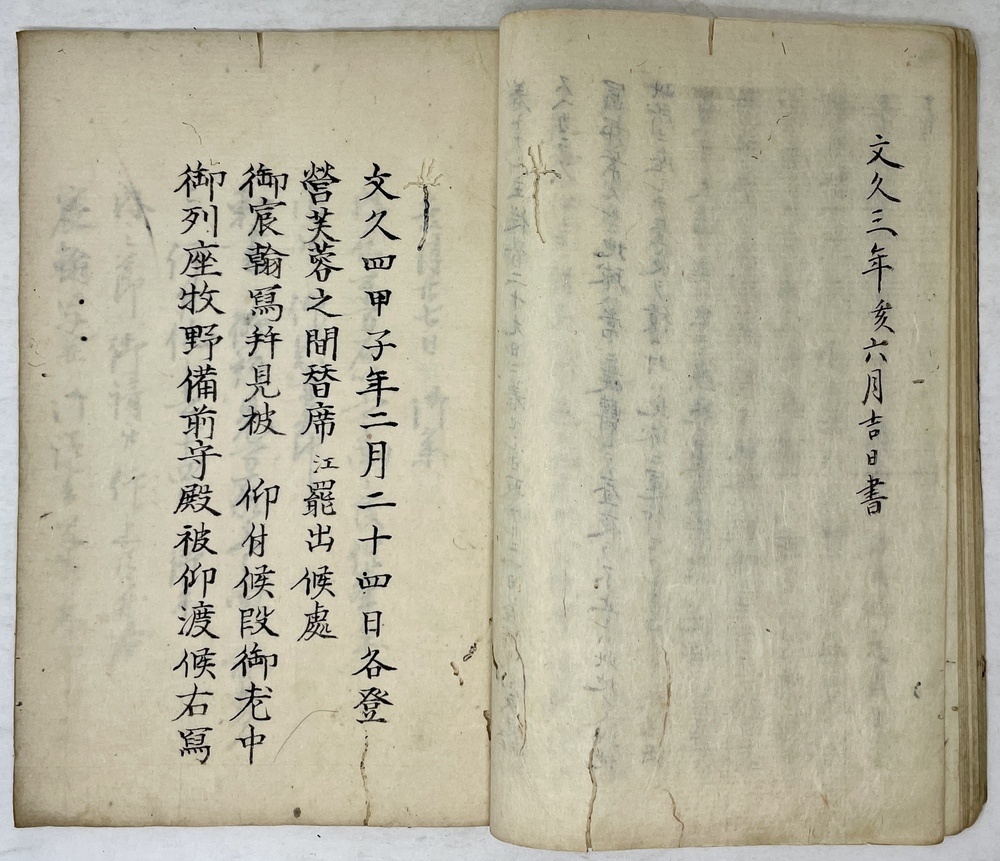 文久三年亥六月吉日書
文久四甲子年二月二十四日各登
營芙蓉之間替席江罷出候處
御宸翰寫幷見被 仰付候段御老中
御列座牧野備前守殿被仰渡候右寫